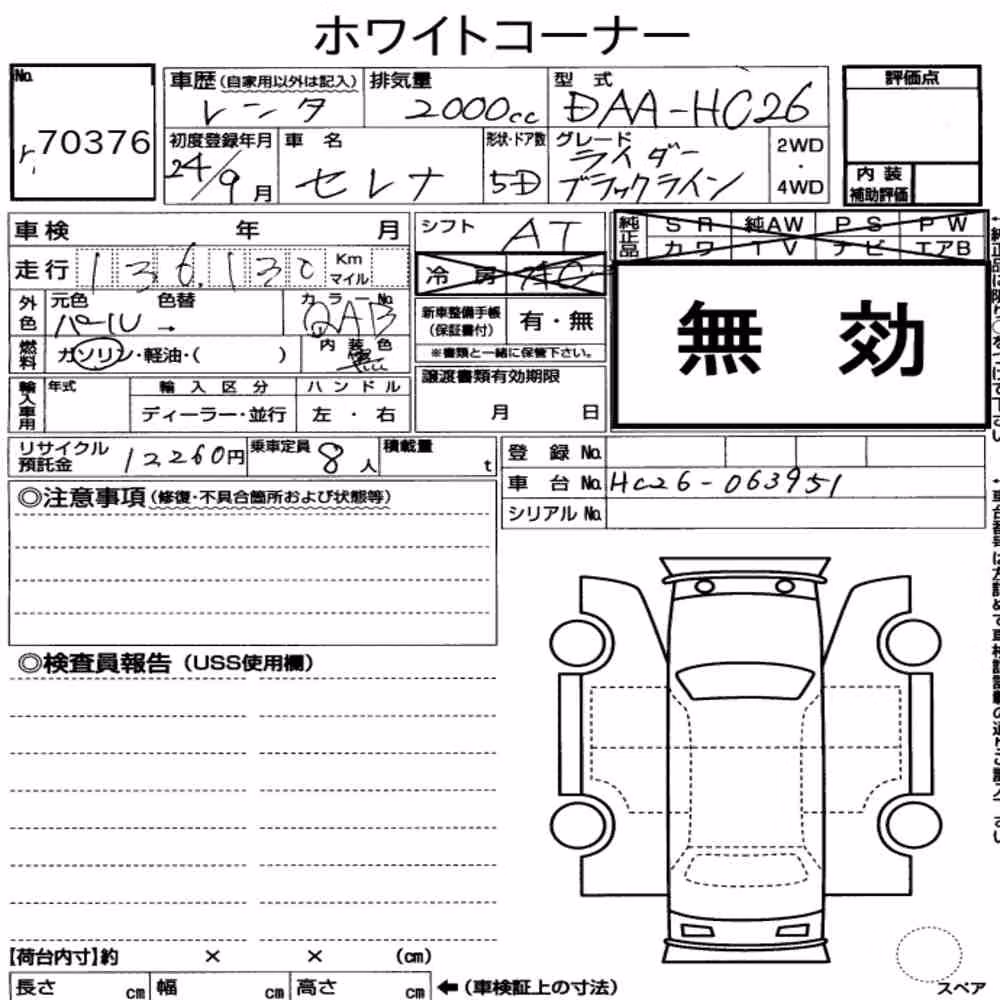 ホワイトコーナー
No. 70376
車歴(自家用以外は記入) レンタ
排気量 2000cc
型式 DAA-HC26
評価点
初度登録年月 24/9月
車名 セレナ
形状・ドア数 5D
グレード ライダー ブラックライン
2WD・4WD
内装補助評価
車検 年 月
シフト AT
純正品 SR 純AW PS PW
カワ TV ナビ エアB
走行 136,130 Km マイル
冷房 AC
外色 元色 パール 色替 →
カラーNo. QAB
新車整備手帳(保証書付) 有・無
※書類と一緒に保管下さい。
無効
燃料 ガソリン・軽油・( )
内装色 黒
譲渡書類有効期限 月 日
輸入車用 年式
輸入区分 ディーラー・並行
ハンドル 左・右
リサイクル預託金 12260円
乗車定員 8人
積載量 t
登録No.
車台No. HC26-063951
シリアルNo.
◎注意事項(修復・不具合箇所および状態等)
◎検査員報告(USS使用欄)
【荷台内寸】約 × × (cm)
長さ cm 幅 cm 高さ cm ←(車検証上の寸法)
スペア